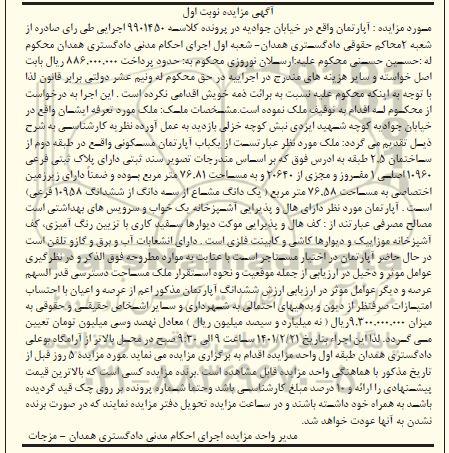 آگهی مزایده نوبت اول
مورد مزایده : آپارتمان واقع در خیابان جوادیه در پرونده کلاسه ۹۹۰۱۴۵۰ اجرایی طی رای صادره از
شعبه ۲محاکم حقوقی دادگستری همدان– شعبه اول اجرای احکام مدنی دادگستری همدان محکوم
له :حسین حسنی محکوم علیه:ارسلان نوروزی محکوم به: حدود پرداخت ۸۸۶.۰۰۰.۰۰۰ ریال بابت
اصل خواسته و سایر هزینه های مندرج در اجراییه در حق محکوم له ونیم عشر دولتی برابر قانون لذا
با توجه به اینکه محکوم علیه نسبت به برائت ذمه خویش اقدامی نکرده است . این اجرا به درخواست
از محکوم لـه اقدام به توقیف ملک نموده است.مشخصات ملک: ملک مورد تعرفه ایشان واقع در
خیابان جوادیه کوچه شهید ایزدی نبش کوچه خزلی بازدید به عمل آورده نظریه کارشناسی به شرح
ذیل تقدیم می گردد: ملک مورد نظر عبارتست از یکباب آپارتمان مسکونی واقع در طبقه دوم از
ساختمان ۲.۵ طبقه به ادرس فوق که بر اساس مندرجات تصویر سند ثبتی دارای پلاک ثبتی فرعی
۱۰۹۶۰ اصلی ۱ مفروز و مجزی از ۲۰۶۴۰ و به مساحت ۷۶.۸۱ متر مربع بوده و ضمنا دارای زیرزمین
اختصاصی به مساحت ۷۶.۵۸ متر مربع ( یک دانگ مشاع از سه دانگ از ششدانگ ۱۰۹۵۸ فرعی)
است . آپارتمان مورد نظر دارای هال و پذیرایی آشپزخانه یک خواب و سرویس های بهداشتی است
مصالح مصرفی عبارتند از : کف هال و پذیرایی موکت دیوارها سفید کاری با تزیین رنگ آمیزی، کف
آشپزخانه موزاییک و دیوارها کاشی و کابینت فلزی است . دارای انشعابات آب و برق و گازو تلفن است
در حال حاضر آپارتمان در اختیار مستاجر است با عنایت به موارد مطروحه فوق الذکر و در نظرگیری
عوامل موثر و دخیل در ارزیابی از جمله موقعیت و نحوه استقرار ملک مساحت دسترسی قدر السهم
عرصه و دیگر عوامل موثر در ارزیابی ارزش ششدانگ آپارتمان مذکور اعم از عرصه و اعیان با احتساب
امتیازات صرفنظر از دیون و بدهیهای احتمالی به شهرداری و سایر اشخاص حقیقی و حقوقی به
میزان ۹.۳۰۰.۰۰۰.۰۰۰ریال ( نه میلیارد و سیصد میلیون ریال ) معادل نهصد وسی میلیون تومان تعیین
می گردد. لذا این اجراء بتاریخ ۱۴۰۱/۲/۲۱ ساعت ۹ الی ۹:۳۰ صبح در محل بالاتر از آرامگاه بوعلی
دادگستری همدان طبقه اول واحد مزایده اقدام به برگزاری مزایده می نماید .مورد مزایده ۵ روز قبل از
تاریخ مذکور با هماهنگی واحد مزایده قابل مشاهده است .برنده مزایده کسی است که بالاترین قیمت
پیشنهادی را ارائه و ۱۰ درصد مبلغ کارشناسی باشد وحتما شماره پرونده بر روی چک قید گردیده
باشد به همراه خود داشته باشند و در ساعت مزایده تحویل دفتر مزایده نمایند که در صورت برنده
نشدن به آنها عودت خواهد شد.
مدیر واحد مزایده اجرای احکام مدنی دادگستری همدان – مزجات